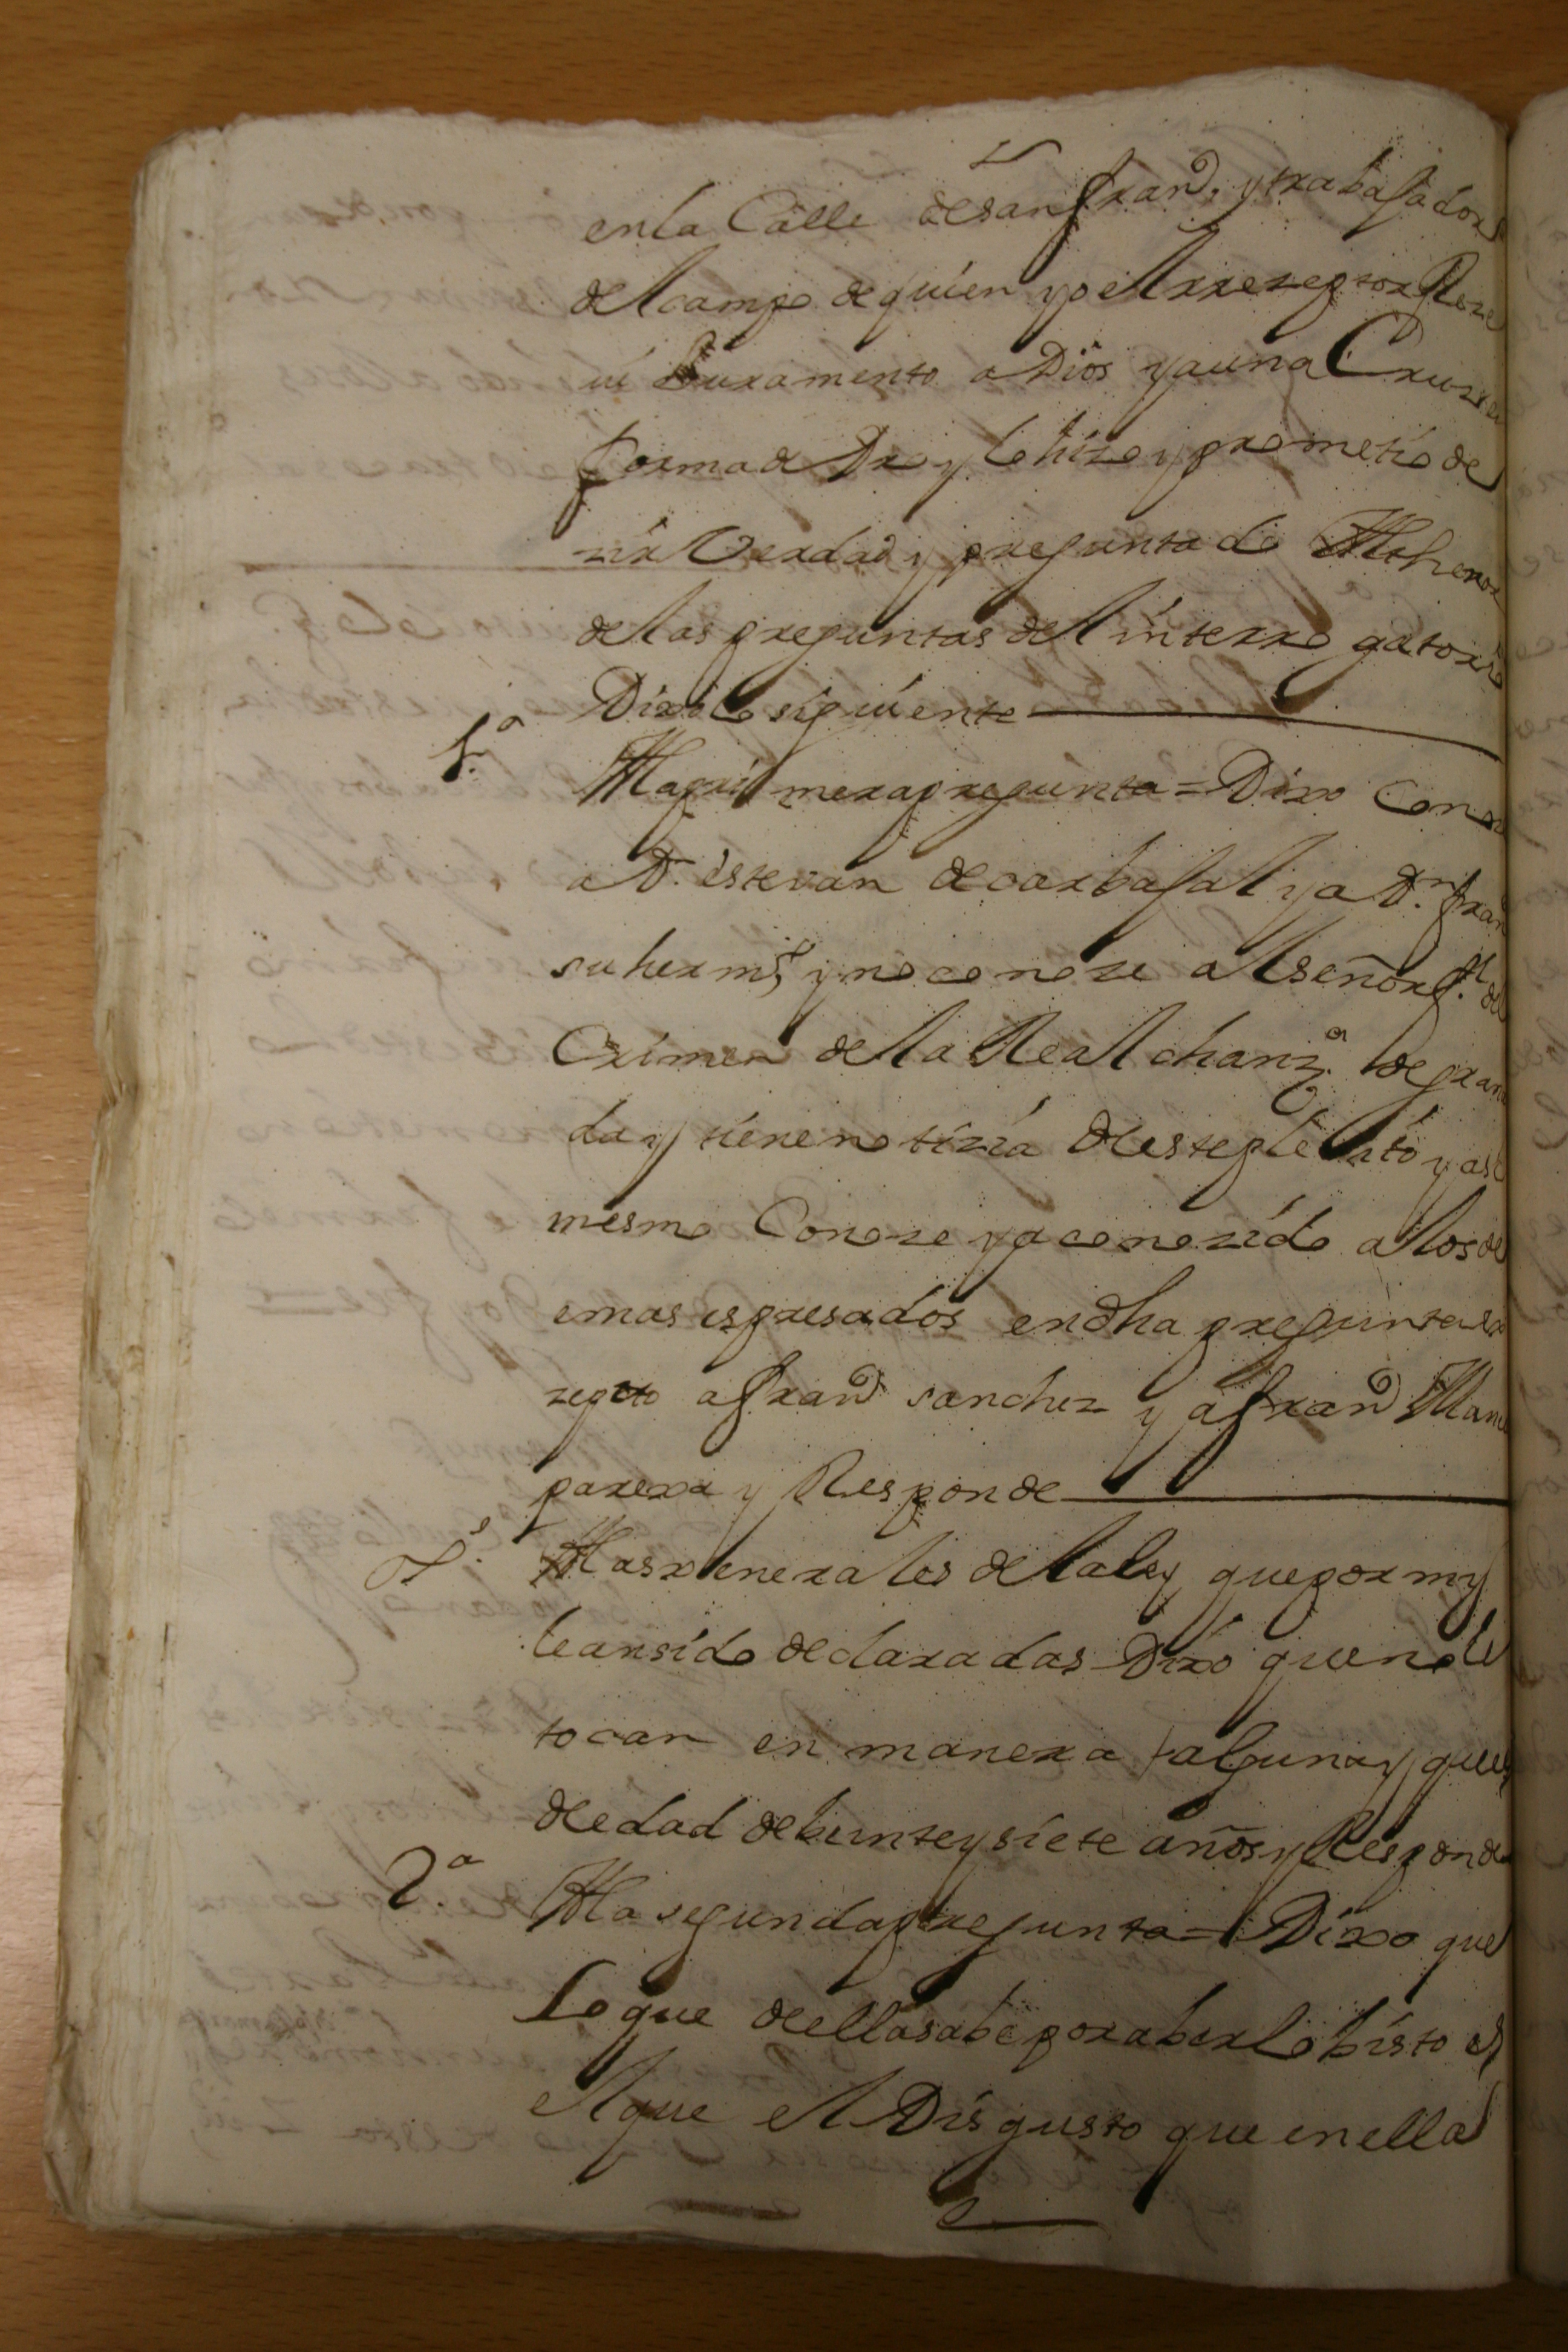 en la Calle de san fran^co, y trabajador
del campo de quien yo el rrezeptor Reze
ui Juramento a Dios y a una Cruz en
forma de Dro y lo hizo y prometio de
zir Verdad y preguntado Al thenor
de las preguntas del interrogatorio
Dixo lo siguiente
1.ª A la primera pregunta = Dixo Conoze
a D.n estevan de carbajal y a D.n fran
su herm.o, y no conoze al señor f.al del
Crimen de la Real chanz.a de grana
da y tiene notizia deeste pleito y asi
mesmo Conoze y a conozido a los de
emas espresados en dha pregunta ex
zepto a fran^co sanchez y a fran^co Manu
parexa y Responde
G.s A las xenerales de la ley que por my
le an sido declaradas Dixo que no le
tocan en manera alguna y que es
de edad de beinte y siete años y Responde
2.ª A la segunda pregunta = Dixo que
Lo que de ella sabe por aberlo bisto es
el que el Disgusto que en ella